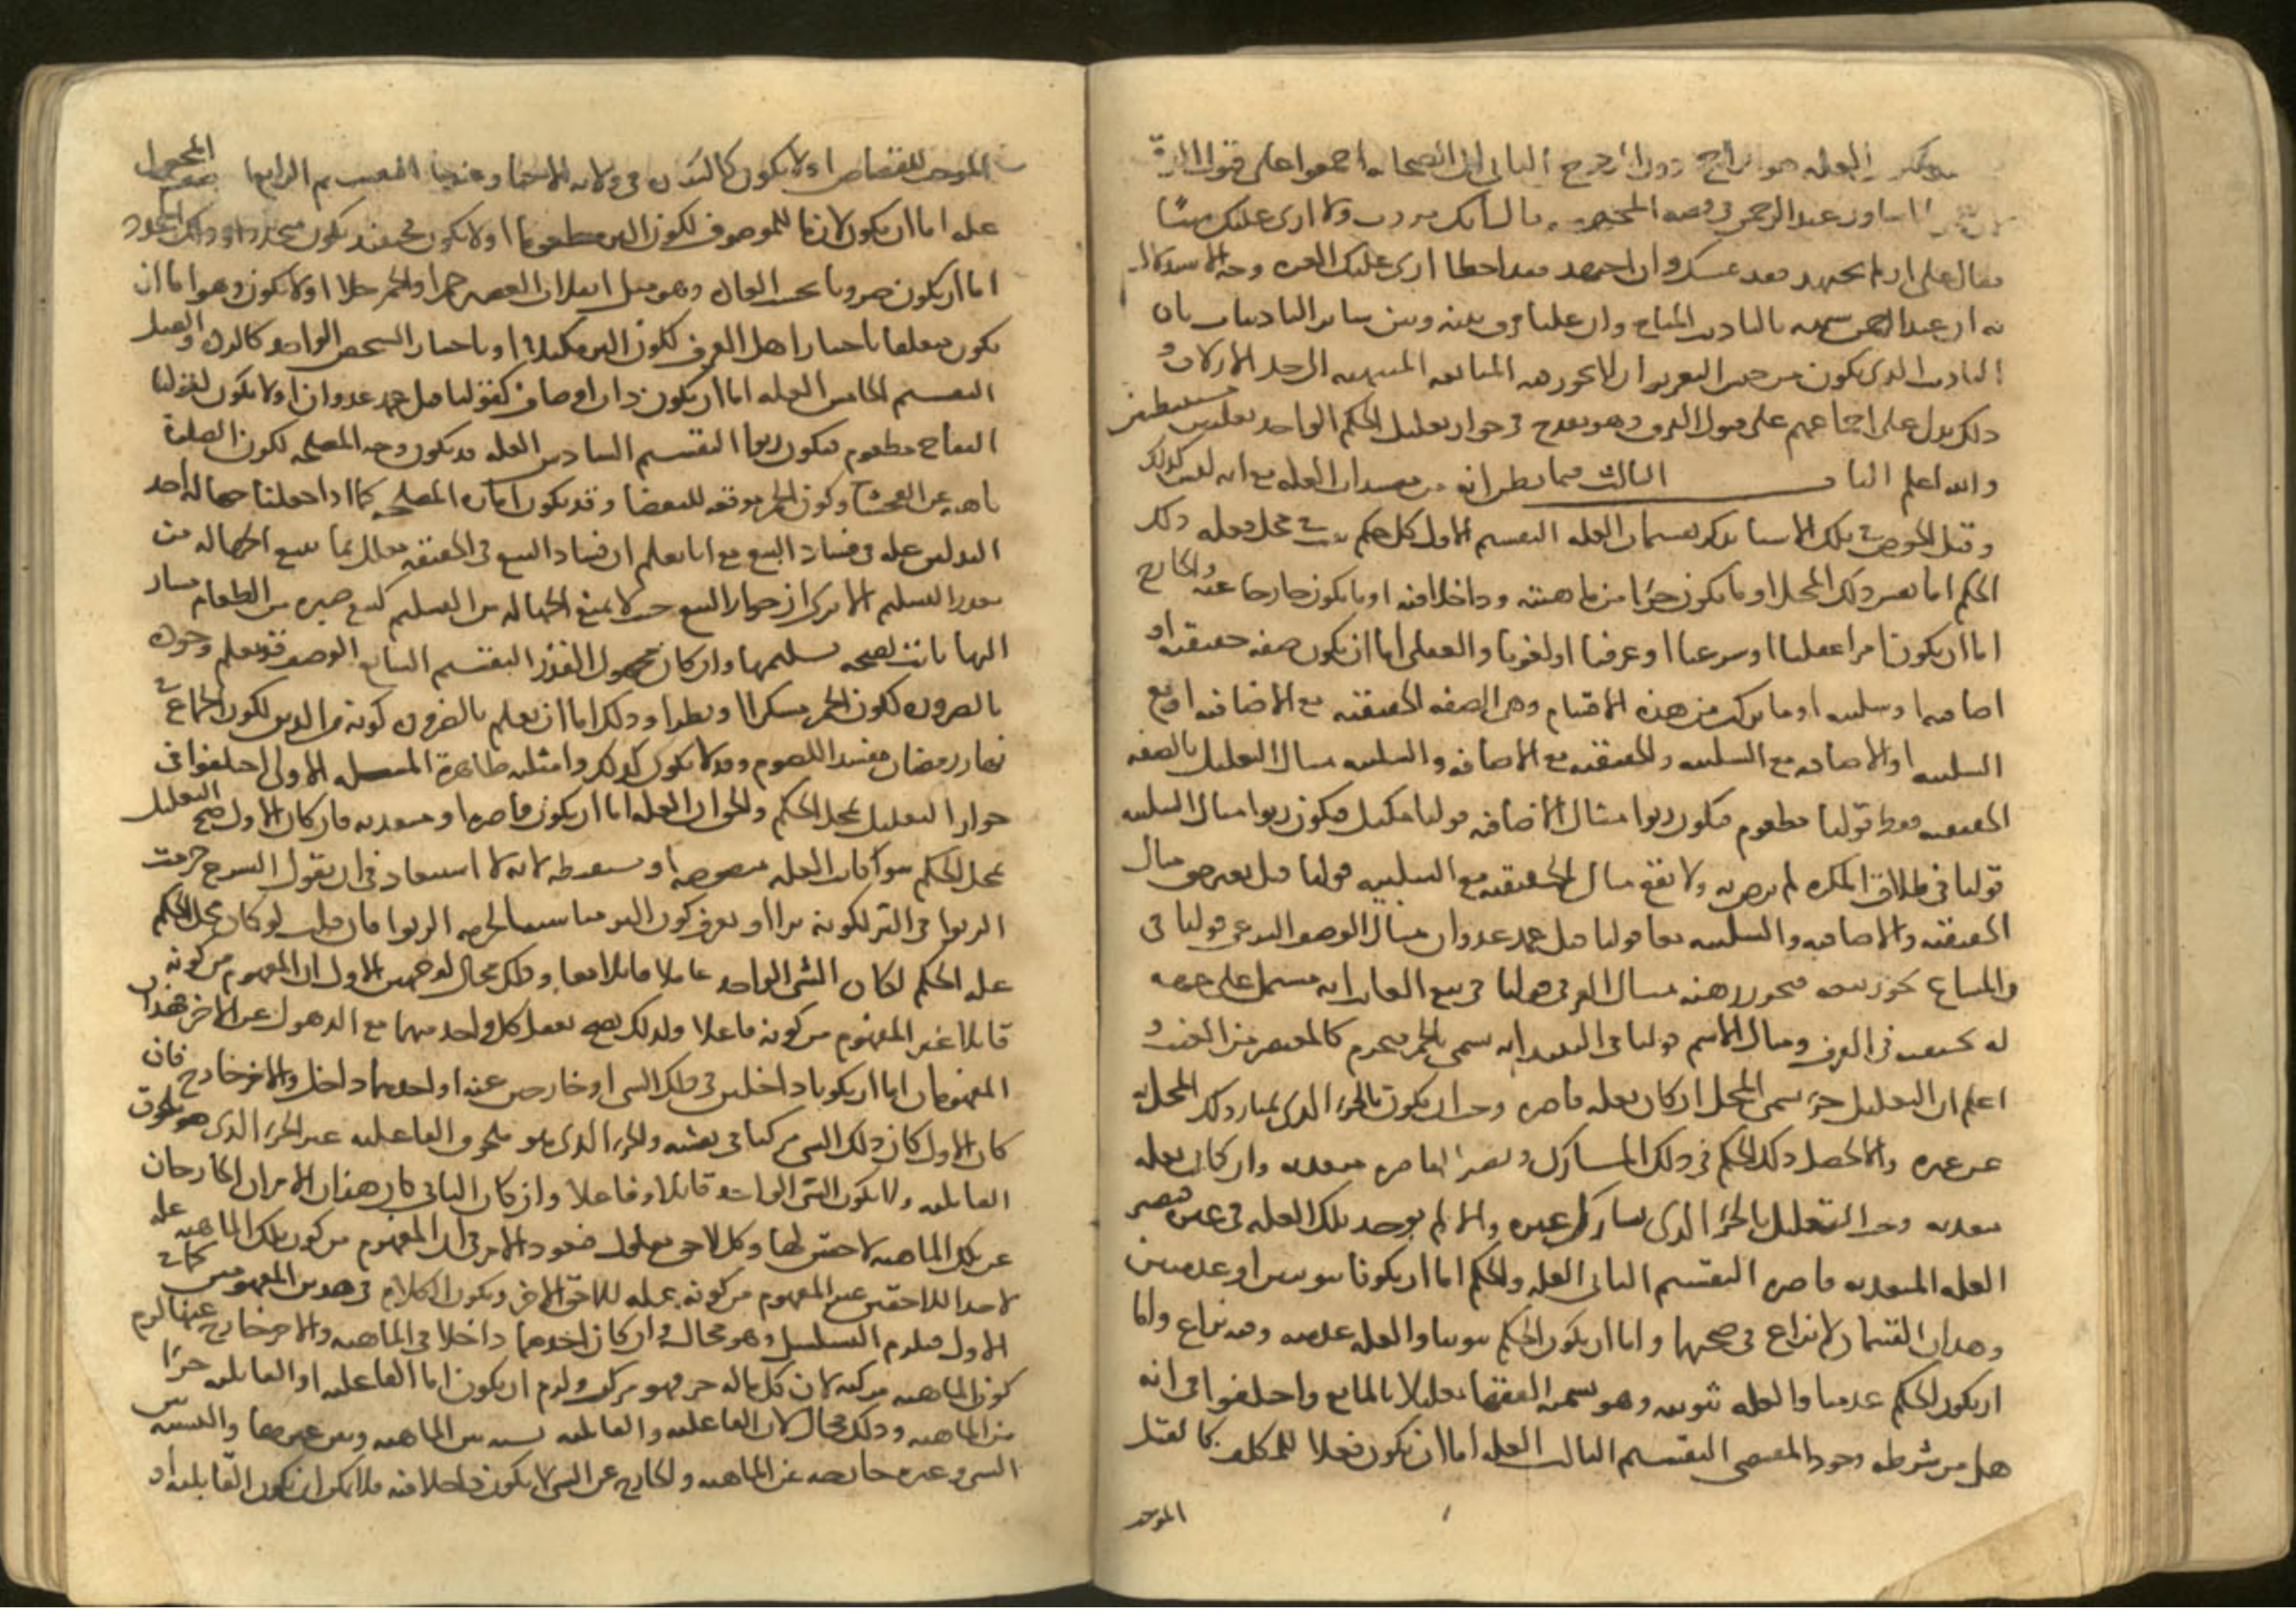 العله هو الراجح دون المرجوح الثانى ان الصحابه اجمعوا على قبول الفرق
لان عمر لما شاور عبد الرحمن فى قصه المجهضه قال انك مودب ولا ارى عليك شيئا
فقال على ان لم يجتهد فقد غشك وان اجتهد فقد اخطا ارى عليك الغره وجه الاستدلال
به ان عبد الرحمن شبهه بالتاديب المباح وان عليا فرق بينه وبين ساير التاديبات بان
التاديب الذى يكون من جنس التعزيرات لا يجوز فيه المبالغه المنتهيه الى حد الاتلاف و
ذلك يدل على اجماعهم على قبول الفرق وهو يقدح فى جواز تعليل الحكم الواحد بعلتين مستنبطتين
والله اعلم الباب الثالث فيما يظن انه من مفسدات العله مع انه ليس كذلك
وقبل الخوض فى تلك الاشيا نذكر تقسيمات العله التقسيم الاول كل حكم ثبت فى محل فعله ذلك
الحكم اما نفس ذلك المحل او ما يكون جزا من ماهيته وداخلا فيه او ما يكون خارجا عنه والخارج
اما ان يكون امرا عقليا او شرعيا او عرفيا او لغويا والعقلى اما ان يكون صفه حقيقيه او
اضافيه او سلبيه او ما يتركب من هذه الاقسام وهى الصفه الحقيقيه مع الاضافيه او مع
السلبيه او الاضافيه مع السلبيه والحقيقيه مع الاضافيه والسلبيه مثال التعليل بالصفه
الحقيقيه فقط قولنا مطعوم فيكون ربوا مثال الاضافيه قولنا مكيل فيكون ربوا مثال السلبيه
قولنا فى طلاق المكره لم يرض به ولا يقع مثال الحقيقيه مع السلبيه قولنا قتل بغير حق مثال
الحقيقيه والاضافيه والسلبيه معا قولنا قتل عمد عدوان مثال الوصف الشرعى قولنا فى
والمشاع يجوز بيعه فيجوز رهنه مثال العرفى قولنا فى بيع الغايب انه مشتمل على جهاله
له مجتنبه فى العرف ومثال الاسم قولنا فى النبيذ انه يسمى بالخمر فيحرم كالمعتصر من العنب و
اعلم ان التعليل جزء مسمى المحل ان كان بعله قاصره وجب ان يكون بالجزء الذى يمتاز ذلك المحل به
عن غيره والا لحصل ذلك الحكم فى ذلك المشارك وتصير القاصره متعديه وان كان بعله
متعديه وجب التعليل بالجزء الذى يشارك غيره والا لم يوجد تلك العله فى غيره فتصير
العله المتعديه قاصره التقسيم الثانى العله والحكم اما ان يكونا ثبوتيين او عدميين
وهذان القسمان لا نزاع فى صحتهما واما ان يكون الحكم ثبوتيا والعله عدميه وفيه نزاع واما
ان يكون الحكم عدميا والعله ثبوتيه وهو يسميه الفقها تعليلا بالمانع واختلفوا فى انه
هل من شرطه وجود المقتضى التقسيم الثالث العله اما ان يكون فعلا للمكلف كالقتل
الموجب
الموجب للقصاص او لا يكون كالبكاره فى ولايه الاجبار عندنا التقسيم الرابع المجعول
عله اما ان يكون لازما للموصوف ككون البر مطعوما او لا يكون فحينئذ يكون متجددا وذلك المتجدد
اما ان يكون ضروريا بحسب العاده وهو مثل انقلاب العصير خمرا والخمر خلا او لا يكون وهو اما ان
يكون متعلقا باختيار اهل العرف ككون البر مكيلا او باختيار الشخص الواحد كالرده والقتل
التقسيم الخامس العله اما ان يكون ذات اوصاف كقولنا قتل عمد عدوان او لا يكون كقولنا
التفاح مطعوم فيكون ربوا التقسيم السادس العله قد يكون وجه المصلحه ككون الصلوة
ناهيه عن الفحشا وكون الخمر موقعه للبغضا وقد يكون اماره المصلحه كما اذا جعلنا جهاله احد
البدلين عله فى فساد البيع مع انا نعلم ان فساد البيع فى الحقيقه معلل بما يتبع الجهاله من
تعذر التسليم الا ترى ان جواز البيع حيث لا يمنع الجهاله من التسليم كبيع صبره من الطعام مشار
اليها بانت بصحه تسليمها وان كان مجهول القدر التقسيم السابع الوصف قد يعلم وجوده
بالضروره ككون الخمر مسكرا او نظرا وذلك اما ان يعلم بالضروره كونه من الدين ككون الجماع فى
نهار رمضان مفسدا للصوم وقد لا يكون كذلك وامثلته ظاهرة المسله الاولى اختلفوا فى
جواز التعليل بمحل الحكم والحق ان العله اما ان يكون قاصره او متعديه فان كان الاول صح التعليل
بمحل الحكم سوا كانت العله منصوصه او مستنبطه لانه لا استبعاد فى ان يقول الشرع حرمت
الربوا فى البر لكونه برا او يعرف كون البر مناسبا لحرمه الربوا فان قلت لو كان محل الحكم
عله الحكم لكان الشى الواحد فاعلا قابلا معا وذلك محال لوجهين الاول ان المفهوم من كونه
قابلا غير المفهوم من كونه فاعلا ولذلك يصح تعقل كل واحد منهما مع الذهول عن الاخر فهذان
المفهومان اما ان يكونا داخلين فى ذلك الشى او خارجين عنه او احدهما داخل والاخر خارج فان
كان الاول كان ذلك الشى مركبا فى نفسه والجزء الذى هو ملحوق الفاعليه غير الجزء الذى هو ملحوق
القابليه ولا يكون الشى الواحد قابلا وفاعلا وان كان الثانى كان هذان الامران الخارجان
عن تلك الماهيه لاحقين لها وكل لاحق معلول فيعود الامر فى ان المفهوم من كون تلك الماهيه عله
لاحد اللاحقين غير المفهوم من كونه عله للاحق الاخر ويكون الكلام فى هذين المفهومين كما فى
الاول فيلزم التسلسل وهو محال وان كان احدهما داخلا فى الماهيه والاخر خارج عنها لزم
كون الماهيه مركبه لان كل ما له جزء فهو مركب ولزم ان يكون اما الفاعليه او القابليه جزءا
من الماهيه وذلك محال لان الفاعليه والقابليه نسبه بين الماهيه وبين غيرها والنسبه بين
الشى وغيره خارجه عن الماهيه والخارج عن الشى لا يكون داخلا فيه فلا يمكن ان يكون القابليه او